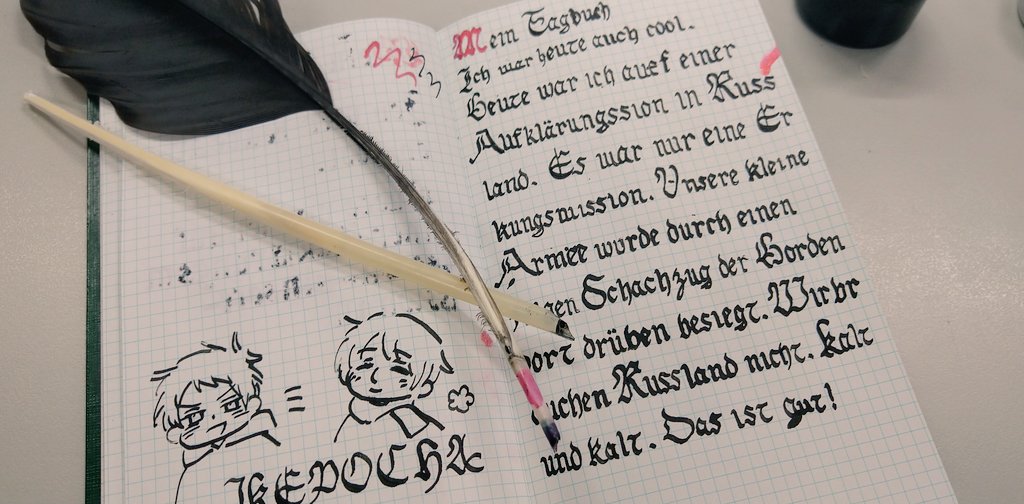 Mein Tagbuch
Ich war heute auch cool.
Heute war ich auf einer
Aufklärungssion in Russ
land. Es war nur eine Er
kungsmission. Unsere kleine
Armee wurde durch einen
Schachzug der Horden
dort drüben besiegt. Wir br
auchen Russland nicht. Kalt
und kalt. Das ist gut!